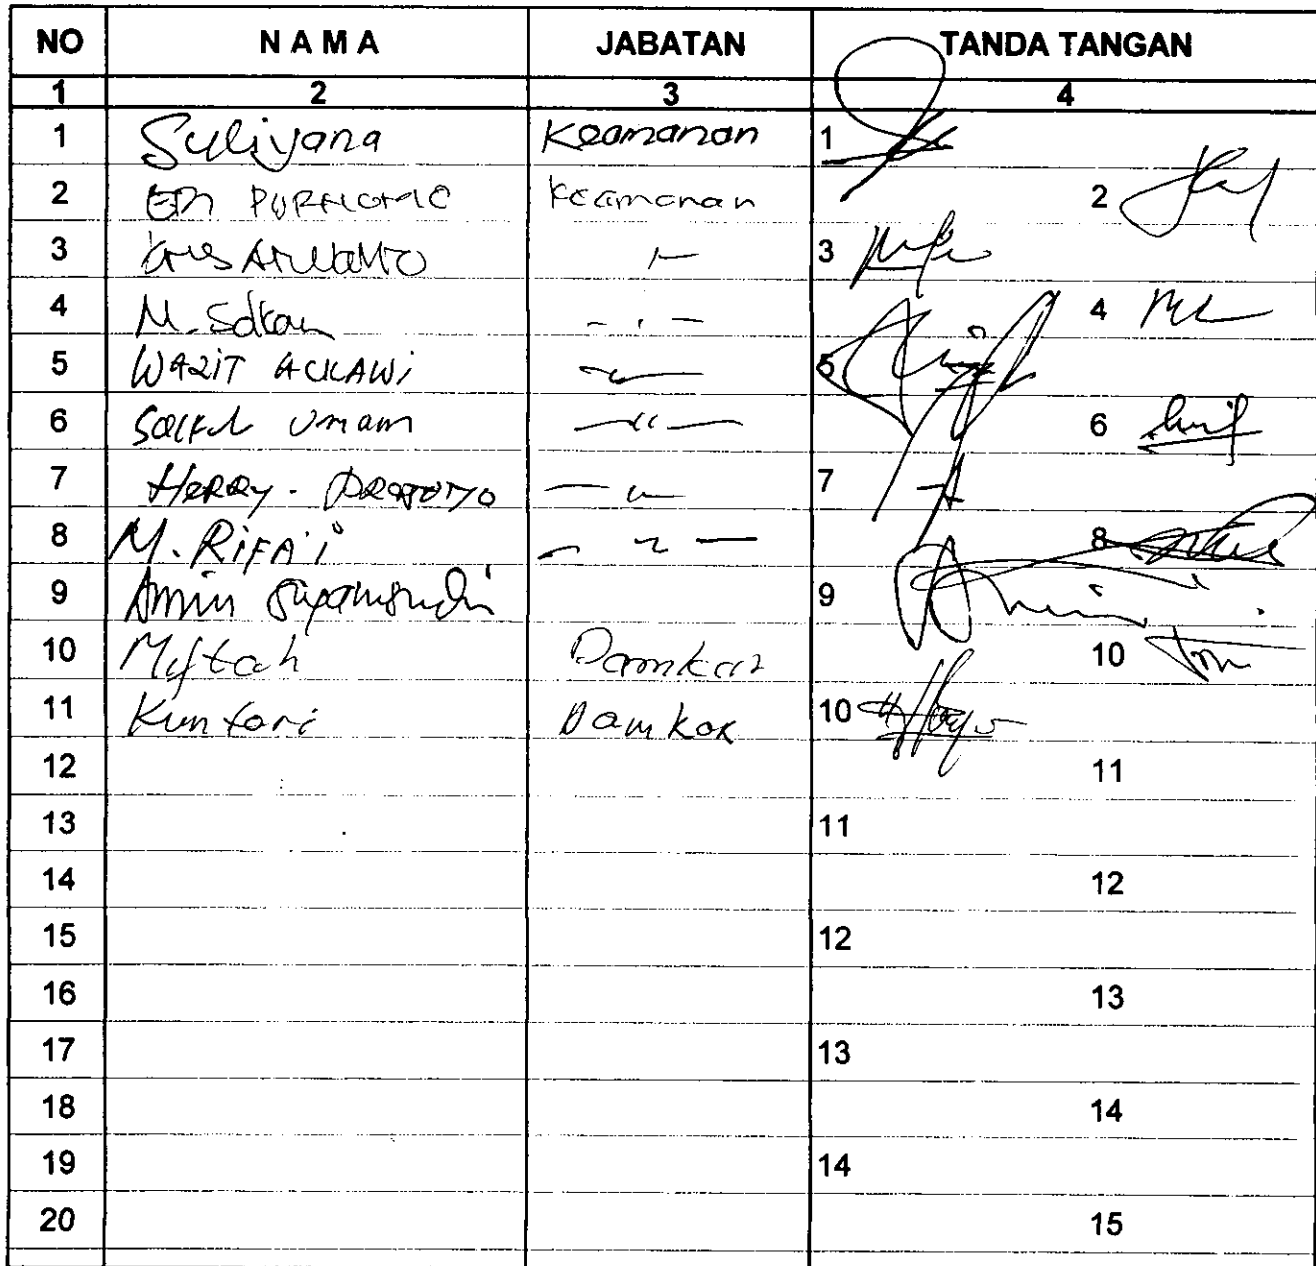 NO NAMA JABATAN TANDA TANGAN
1 2 3 4
1 Suliyana Keamanan 1
2 EDI PURNOMO Keamanan 2
3 3
4 M. 4
5 WAZIT 5
6 Umam 6
7 HERRY. PRATOMO 7
8 M. RIFA'I 8
9 Amin 9
10 Miftah Damkar 10
11 Kuntari Damkar 10
12 11
13 11
14 12
15 12
16 13
17 13
18 14
19 14
20 15